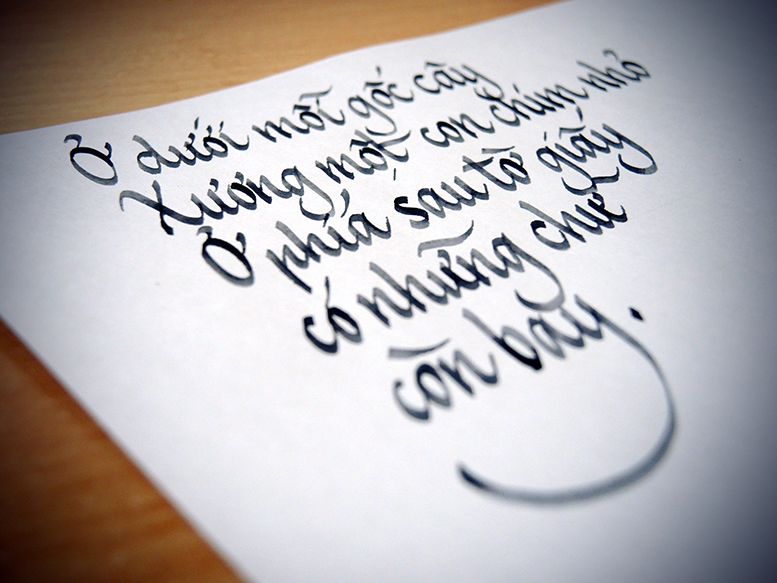 Ở dưới một gốc cây
Xương một con chim nhỏ
Ở phía sau tờ giấy
có những chữ
còn bay.